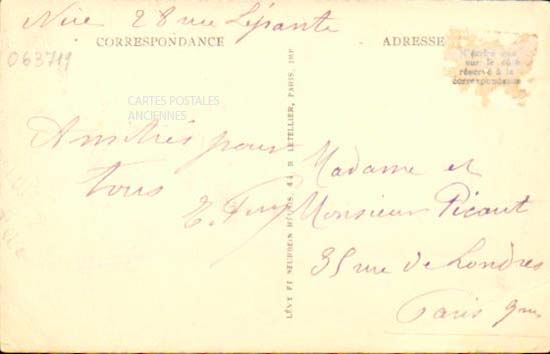 Nice 28 rue Lépante
CORRESPONDANCE
ADRESSE
063719
N'écrire que
sur le côté
réservé à la
correspondance
CARTES POSTALES
ANCIENNES
Amitiés pour
tous
E.
LÉVY ET NEURDEIN RÉUNIS, 44, R. LETELLIER, PARIS, IMP
Madame et
Monsieur Picaut
35 rue de Londres
Paris 9me